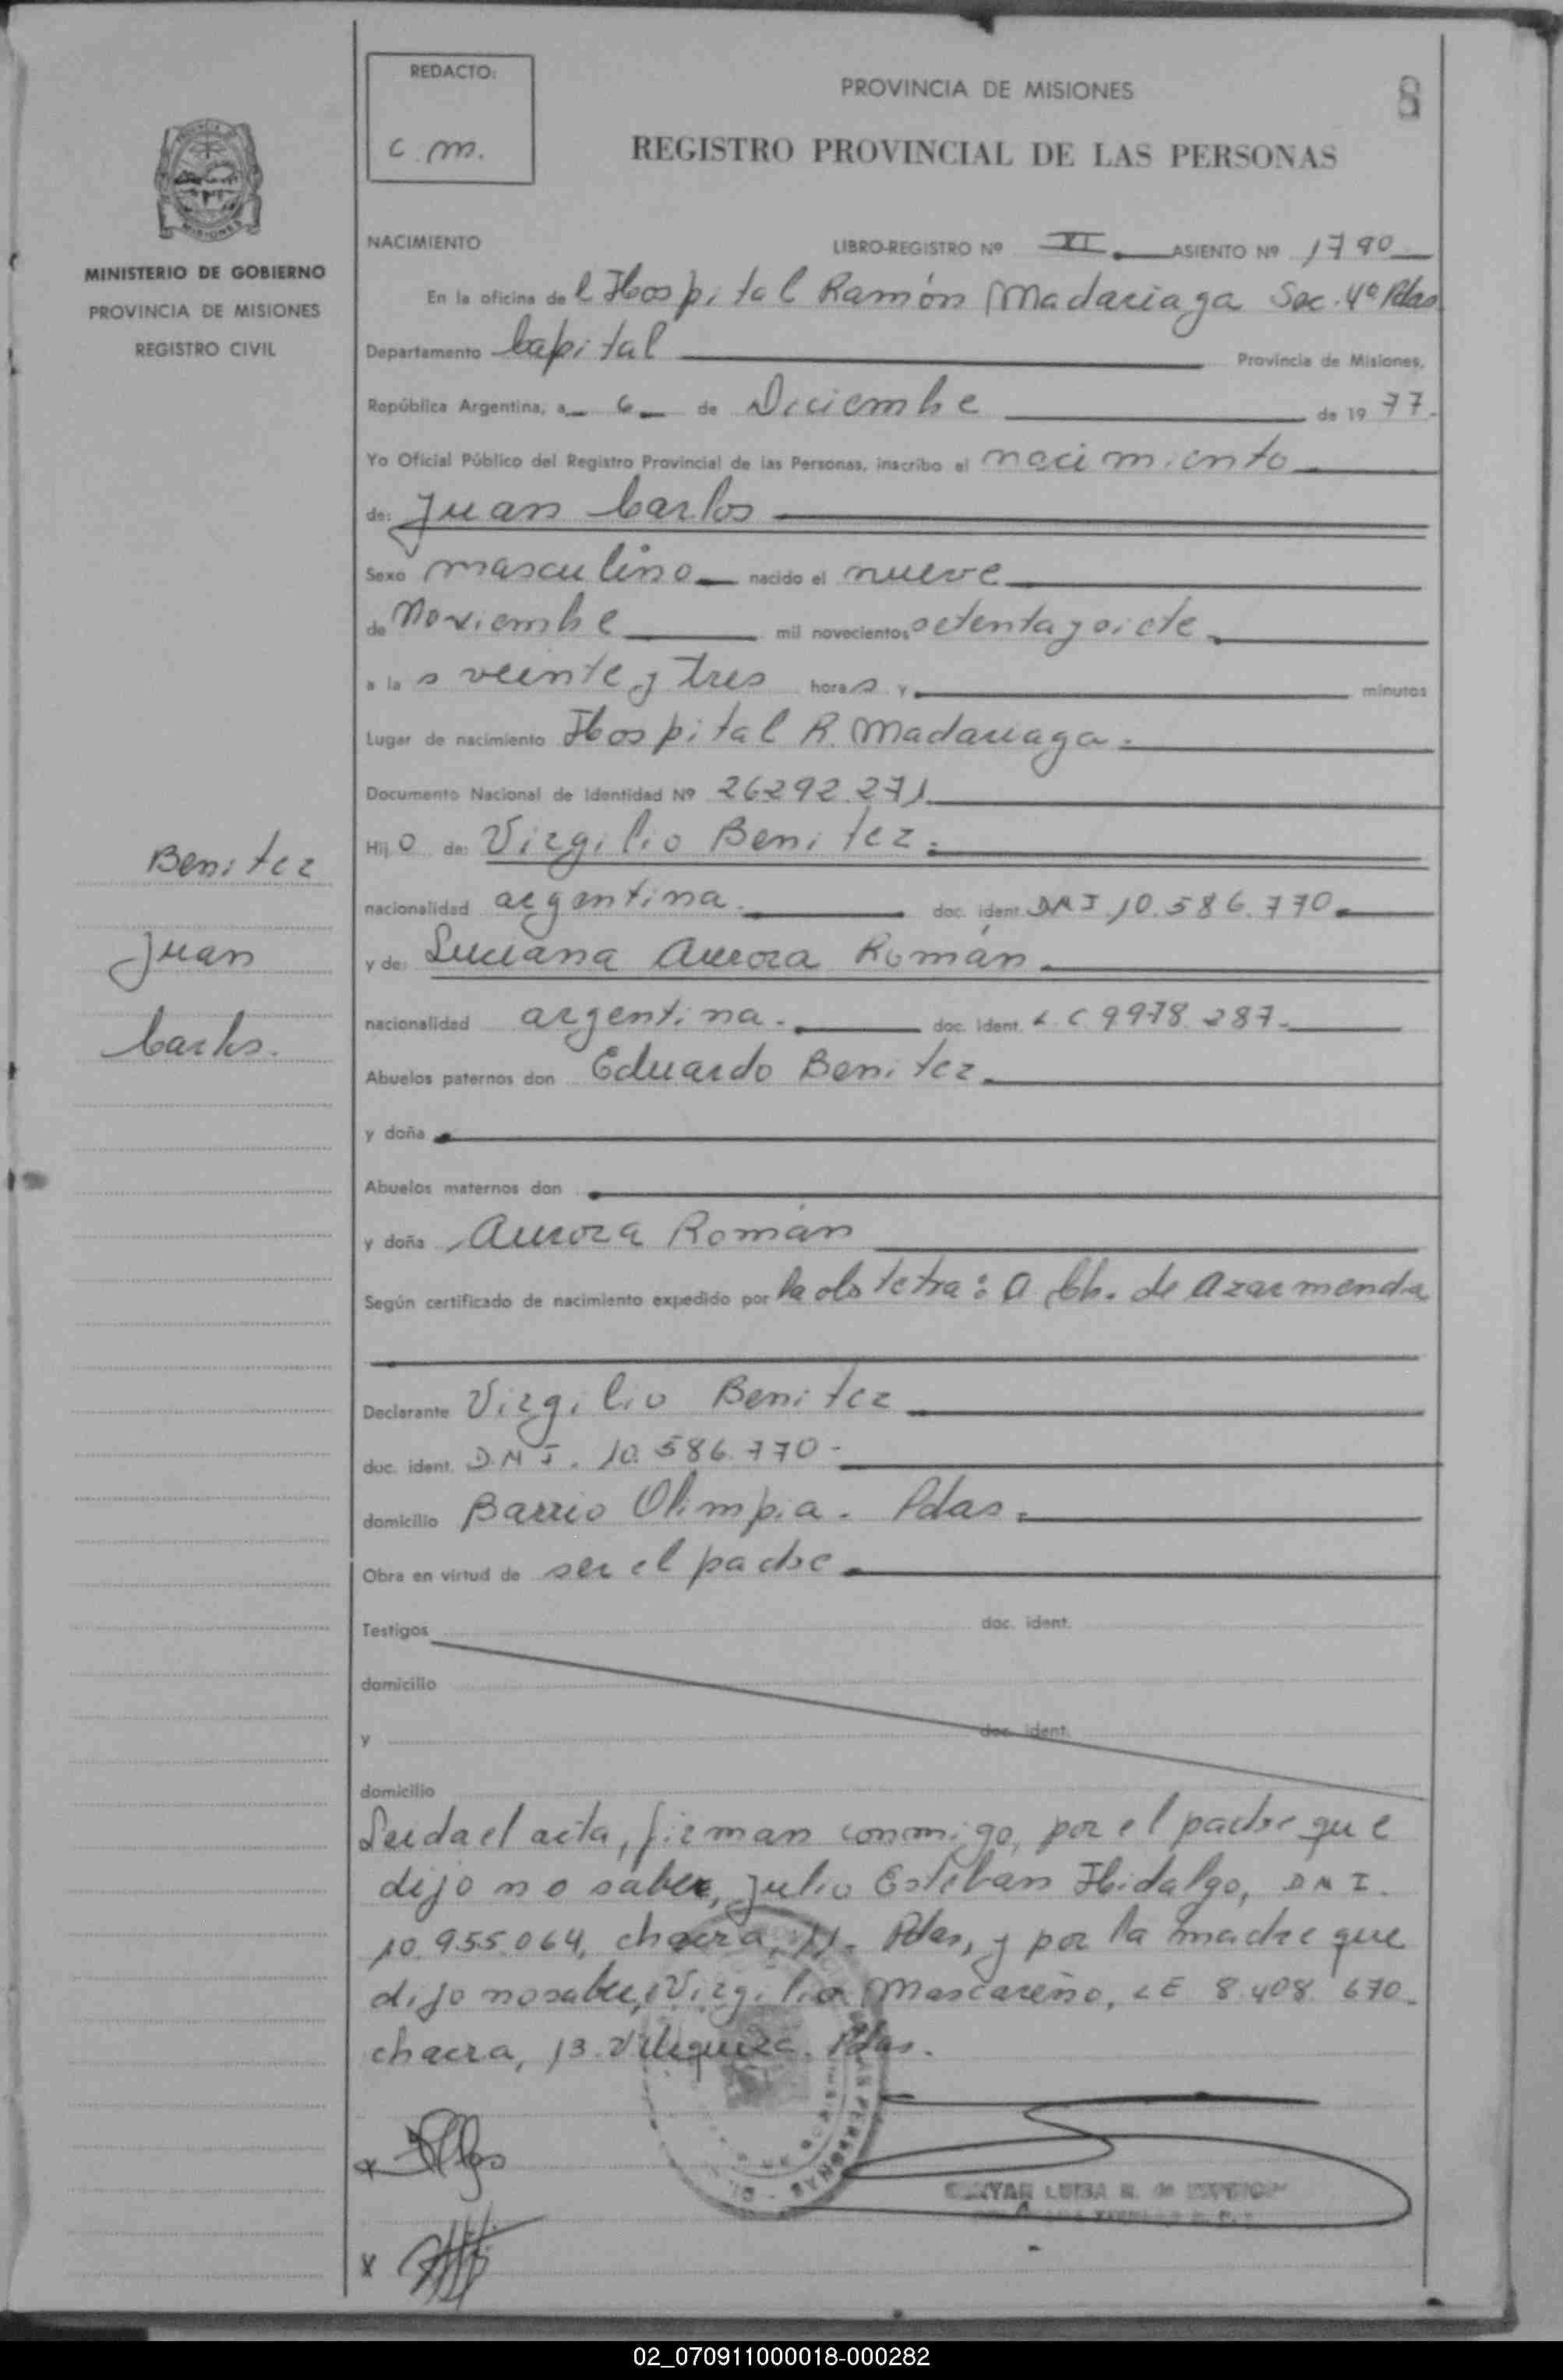 REDACTO:
C. M.
PROVINCIA DE MISIONES
8
REGISTRO PROVINCIAL DE LAS PERSONAS
MISIONES
MINISTERIO DE GOBIERNO
PROVINCIA DE MISIONES
REGISTRO CIVIL
NACIMIENTO LIBRO-REGISTRO Nº XI. ASIENTO Nº 1790
En la oficina del Hospital Ramón Madariaga Sec. 4ª Pdas
Departamento Capital Provincia de Misiones,
República Argentina, a 6 de Diciembre de 1977.
Yo Oficial Público del Registro Provincial de las Personas, inscribo el nacimiento
de: Juan Carlos
Sexo masculino nacido el nueve
de Noviembre mil novecientos setenta y siete
a las veinte y tres horas y minutos
Lugar de nacimiento Hospital R. Madariaga.
Documento Nacional de Identidad Nº 26292.271
Hijo de: Virgilio Benitez.
nacionalidad argentina. doc. ident. DNI 10.586.770.
y de: Luciana Aurora Román.
nacionalidad argentina. doc. ident. L C 9978 287.
Abuelos paternos don Eduardo Benitez.
y doña
Abuelos maternos don
y doña Aurora Román
Según certificado de nacimiento expedido por la obstetra: A Ch. de Azarmendia
Declarante Virgilio Benitez
doc. ident. D.N I. 10.586.770-
domicilio Barrio Olimpia. Pdas.
Obra en virtud de ser el padre.
Testigos doc. ident.
domicilio
y doc. ident.
domicilio
Leida el acta, firman conmigo, por el padre que
dijo no saber, Julio Esteban Hidalgo, DNI.
10.955.064, chacra, 11. Pdas, y por la madre que
dijo no saber, Virgilio Mascareño, LE 8.408.670.
chacra, 13. Pdas.
Benitez
Juan
Carlos.
x
x
LUISA
02_070911000018-000282